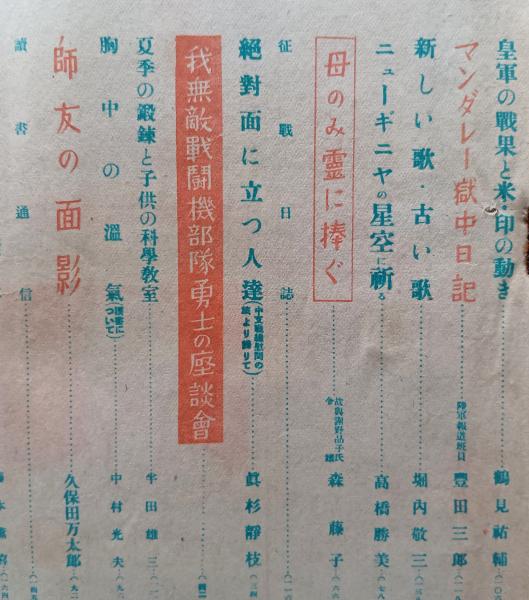 皇軍の戰果と米・印の動き 鶴見祐輔
マンダレー獄中日記 陸軍報道班員 豊田三郎
新しい歌・古い歌 堀内敬三
ニューギニヤの星空に祈る 高橋勝美
母のみ靈に捧ぐ 故與謝野晶子氏令孃 森藤子
征戰日誌
絕對面に立つ人達(中支戰線慰問の旅より歸りて) 眞杉靜枝
我無敵戰鬪機部隊勇士の座談會
夏季の鍛鍊と子供の科學教室 半田雄三
胸中の溫氣(讀書について) 中村光夫
師友の面影 久保田万太郎
讀書通信